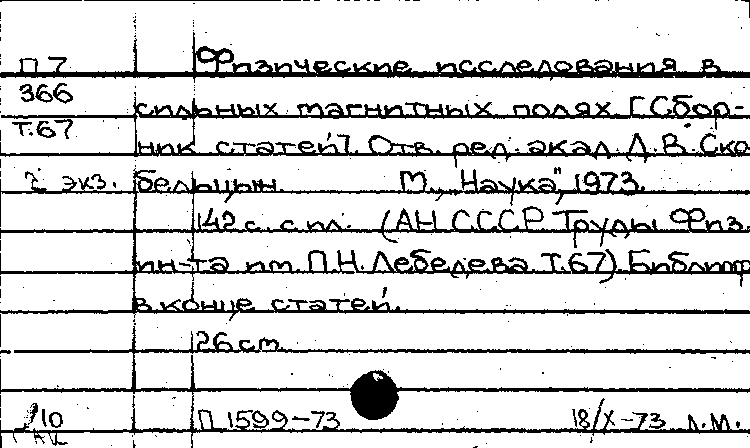 П 7 Физические исследования в
366 сильных магнитных полях [Сбор-
Т.67 ник статей]. Отв. ред. акад. Д.В. Ско
2 экз. бельцын. М., "Наука", 1973.
142 с. с ил. (АН СССР Труды Физ.
ин-та им. П.Н. Лебедева Т.67). Библиогр
в конце статей.
26 см.
10 П 1599-73 18/X-73 Л.М.